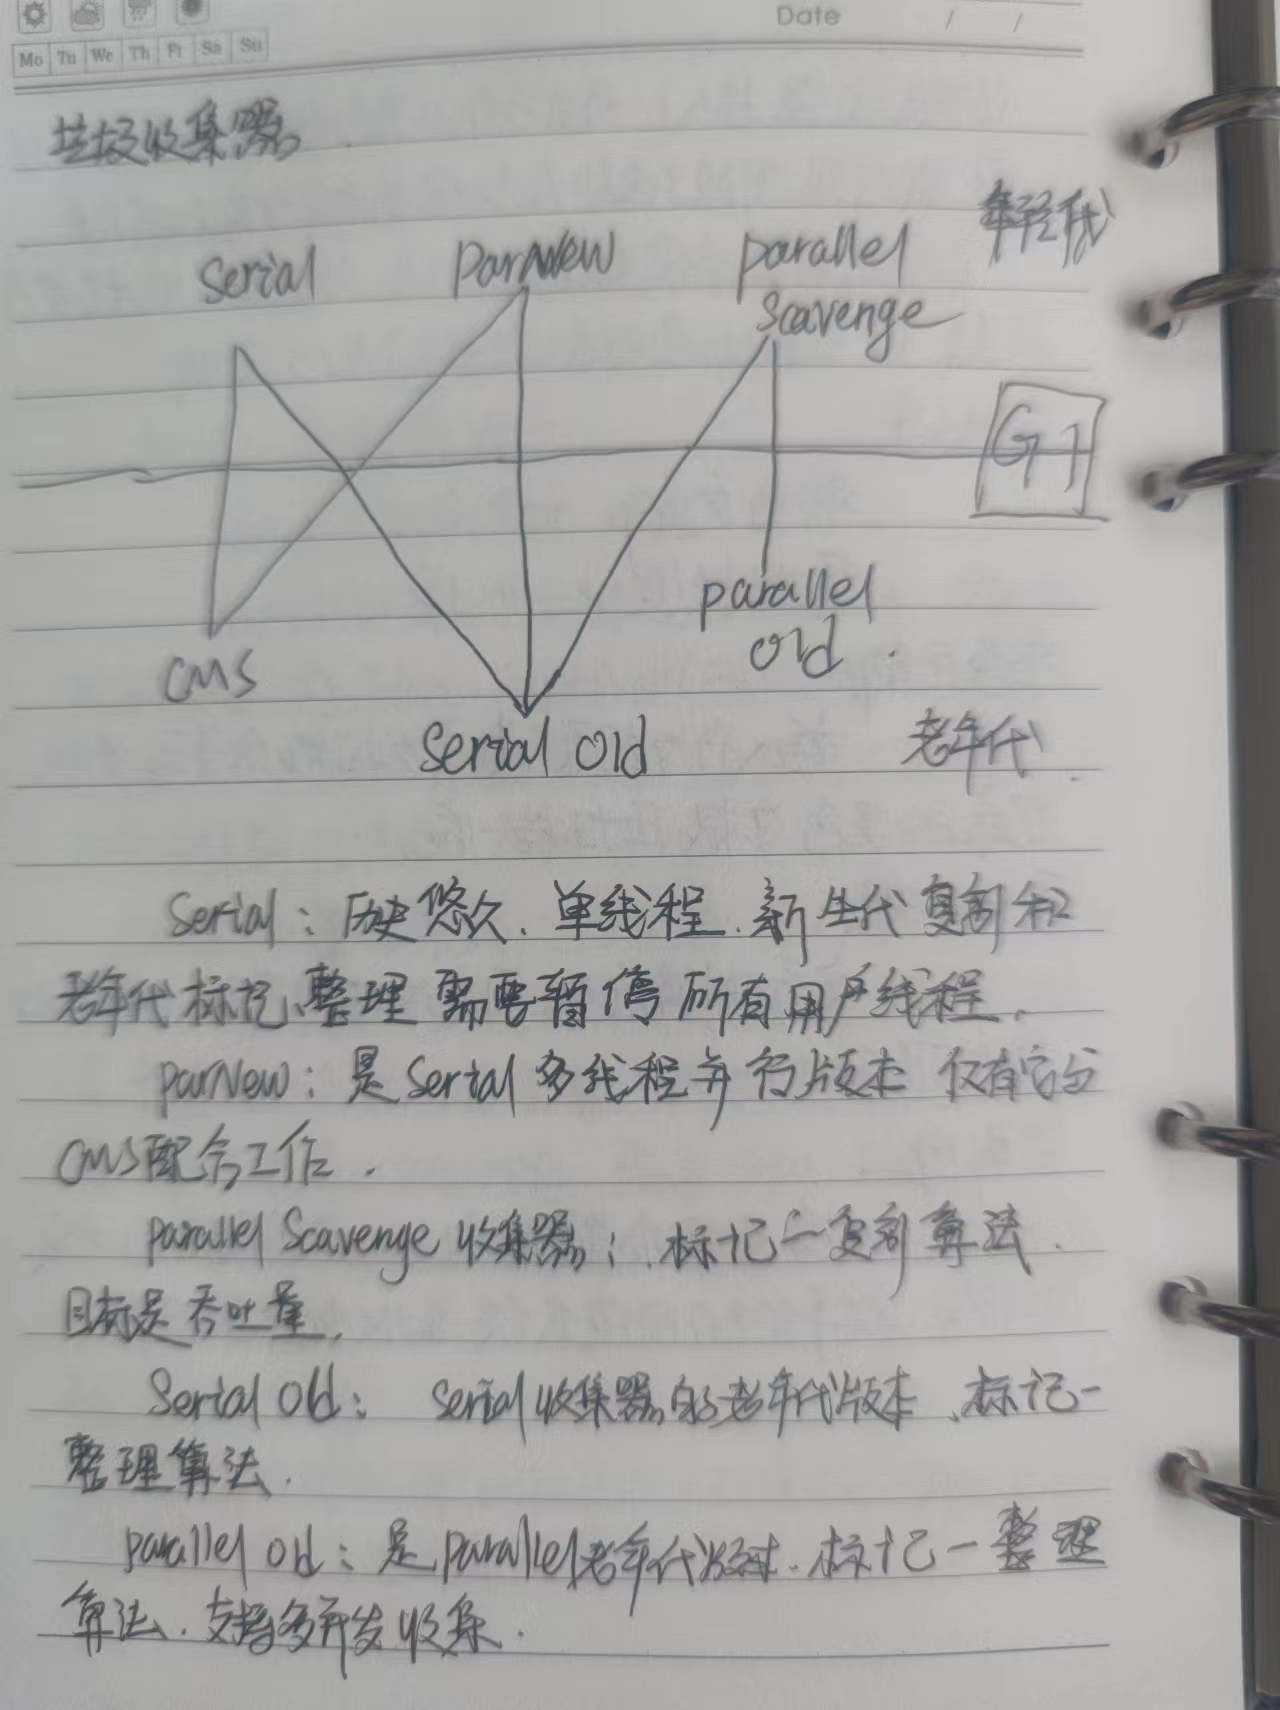 Date / /
Mo Tu We Th Fr Sa Su
垃圾收集器
年轻代
Serial ParNew parallel
Scavenge
G1
parallel
old.
CMS
Serial Old 老年代
Serial：历史悠久、单线程、新生代复制和
老年代标记、整理 需要暂停所有用户线程.
parNew：是Serial多线程并行版本 仅有它与
CMS配合工作.
parallel Scavenge 收集器：标记一复制算法.
目标是吞吐量.
Serial Old： Serial收集器的老年代版本、标记一
整理算法.
parallel old：是parallel老年代版本. 标记一整理
算法. 支持多并发收集.